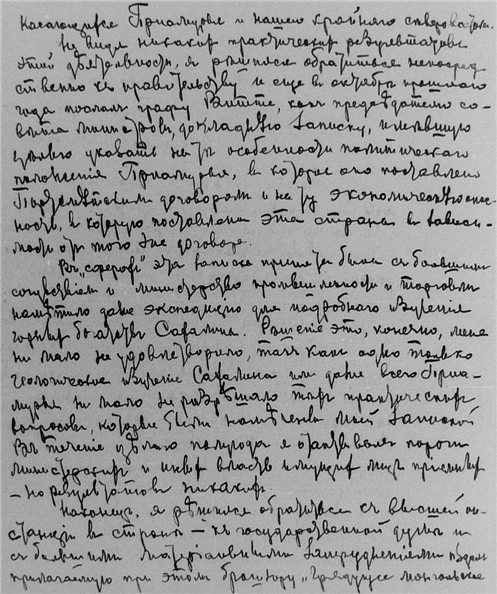 касающихся Приамурья и нашего крайняго северовостока.
Не видя никаких практических результатов
этой деятельности, я решился обратиться непосред
ственно к правительству и еще в октябре прошлого
года послал графу Витте, как председателю со-
вета министров, докладную записку, имевшую
целью указать на те особенности политического
положения Приамурья, в которое оно поставлено
Портсмутским договором и на ту экономическую опас-
ность, в которую поставлена эта страна в зависи-
мости от того же договора.
В "сферах" эта записка принята была с большим
сочувствием и министерство промышленности и торговли
наметило даже экспедицию для подробного изучения
горных богатств Сахалина. Решение это, конечно, меня
ни мало не удовлетворило, так как одно только
геологическое изучение Сахалина или даже всего Приа-
мурья ни мало не разрешало тех практических
вопросов, которые были намечены моей запиской
В течение целого полугода я оббивал пороги
министерских и иных власть имущих лиц приемных
— но результатов никаких.
Наконец, я решился обратиться к высшей ин-
станции в стране — к государственной думе и
с большими материальными затруднениями издал
прилагаемую при этом брошюру "Грядущее монгольское